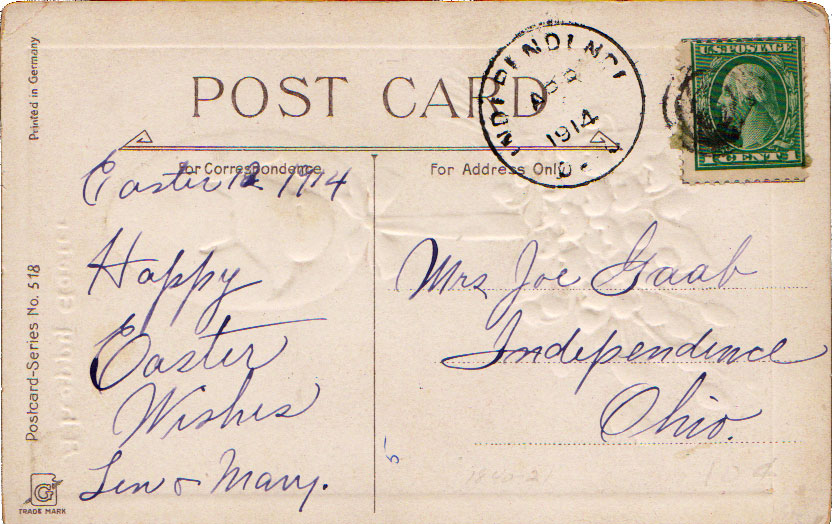 Printed in Germany
POST CARD
INDEPENDENCE
APR
1914
O.
U.S. POSTAGE
1 CENT 1
For Correspondence
For Address Only
Easter 12 1914
Happy
Easter
Wishes
Len & Mary.
Mrs Joe Gaab
Independence
Ohio.
Postcard-Series No. 518
G
TRADE MARK
5